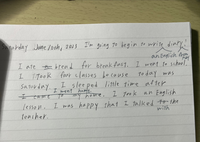 June 20th, 2023 I'm going to begin to write diary
in English
I ate bread for breakfast. I went to school.
I took four classes because today was
Saturday. I sleeped little time after
I went home
I took an English
lesson. I was happy that I talked to the
with
teacher.